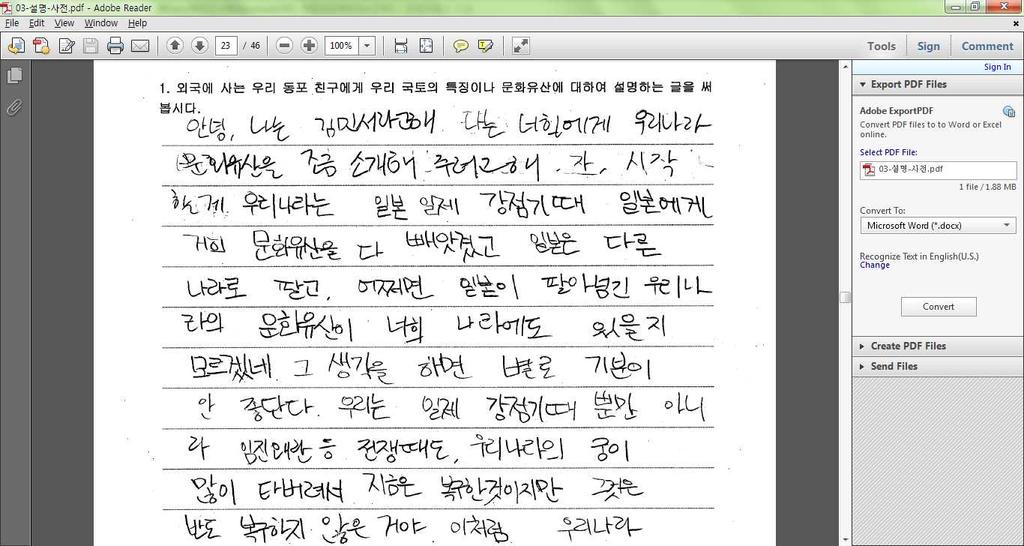 03-설명-사전.pdf - Adobe Reader
File Edit View Window Help
23 / 46 100% Tools Sign Comment
Sign In
Export PDF Files
Adobe ExportPDF
Convert PDF files to to Word or Excel
online.
Select PDF File:
03-설명-사전.pdf
1 file / 1.88 MB
Convert To:
Microsoft Word (*.docx)
Recognize Text in English(U.S.)
Change
Convert
Create PDF Files
Send Files
1. 외국에 사는 우리 동포 친구에게 우리 국토의 특징이나 문화유산에 대하여 설명하는 글을 써
봅시다.
안녕, 나는 김민서라고해 나는 너희에게 우리나라
문화유산을 조금 소개해 주려고해. 자, 시작
할게 우리나라는 일본 일제 강점기때 일본에게
거의 문화유산을 다 빼앗겼고 일본은 다른
나라로 팔고, 어쩌면 일본이 팔아넘긴 우리나
라의 문화유산이 너희 나라에도 있을지
모르겠네. 그 생각을 하면 별로 기분이
안 좋단다. 우리는 일제 강점기때 뿐만 아니
라 임진왜란 등 전쟁때도, 우리나라의 궁이
많이 타버려서 지금은 복구한것이지만 그것은
반도 복구하지 않은 거야. 이처럼 우리나라